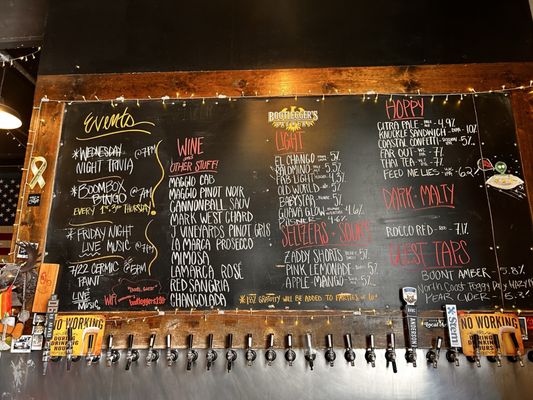 Events
*Wednesday @7pm
Night Trivia
*Boombox @7pm
Bingo
Every 1st & 3rd Thursday!
*Friday Night
Live Music @7pm
7/22 Cermic @6pm
Paint
Live
Music
WiFi
Wine
and
other stuff!
Maggio Cab
Maggio Pinot Noir
Cannonball Sauv
Mark West Chard
J Vineyards Pinot Gris
La Marca Prosecco
Mimosa
Lamarca Rosé
Red Sangria
Changolada
*20% gratuity will be added to parties of
Bootlegger's
Light
El Chango 5%
Baldmino 5.5%
Fab Light 4.3%
Old World 5%
Babystar 5%
Guava Glow 4.6%
Pilsner 4.6%
Seltzers - Sours
Zaddy Shorts 5%
Pink Lemonade 5%
Apple-Mango 5%
Hoppy
Citra Pale 4.9%
Knuckle Sandwich 10%
Coastal Confetti 5.7%
Far Out 7%
Thai Tea 7%
Feed Me Lies 6.2%
Dark-Malty
Rocco Red 7.1%
Guest Taps
Boont Amber 5.8%
North Coast Foggy Day Hazy
Pear Cider 5.2%
NO WORKING
DURING
DRINKING HOURS
Stern
NO WORKING
DURING
DRINKING HOURS